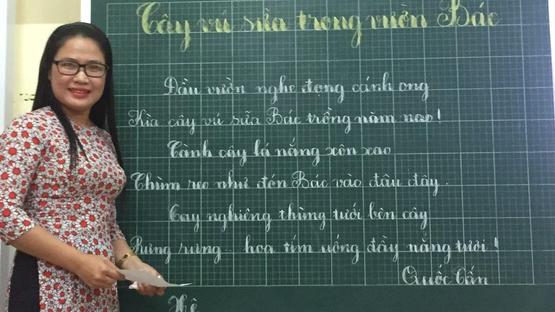 Cây vú sữa trong vườn Bác
Đầu vườn nghe đọng cánh ong
Kìa cây vú sữa Bác trồng năm nao!
Cành cây lá nắng xôn xao
Thìm reo như đón Bác vào đâu đây.
Tay nghiêng thùng tưới bên cây
Rưng rưng... hoa tím uống đầy nắng tươi!
Quốc Tấn
Hè